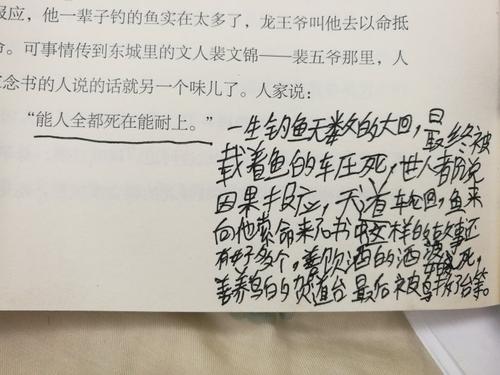 报应，他一辈子钓的鱼实在太多了，龙王爷叫他去以命抵
命。可事情传到东城里的文人裴文锦——裴五爷那里，人
念书的人说的话就另一个味儿了。人家说：
“能人全都死在能耐上。”
一生钓鱼无数的大回，最终被
载着鱼的车压死，世人都说
因果报应，天道轮回，鱼来
向他索命来了。书中这样的故事还
有好多个，善饮酒的酒
死，
善养鸟的贺道台最后被鸟